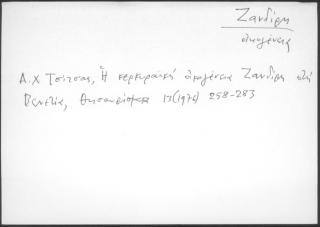 Ζανδίρη
οικογένεια
Α. Χ Τσίτσας, Ἡ κερκυραϊκή οἰκογένεια Ζανδίρη στή
Βενετία, Θησαυρίσματα 13 (1976) 258-283